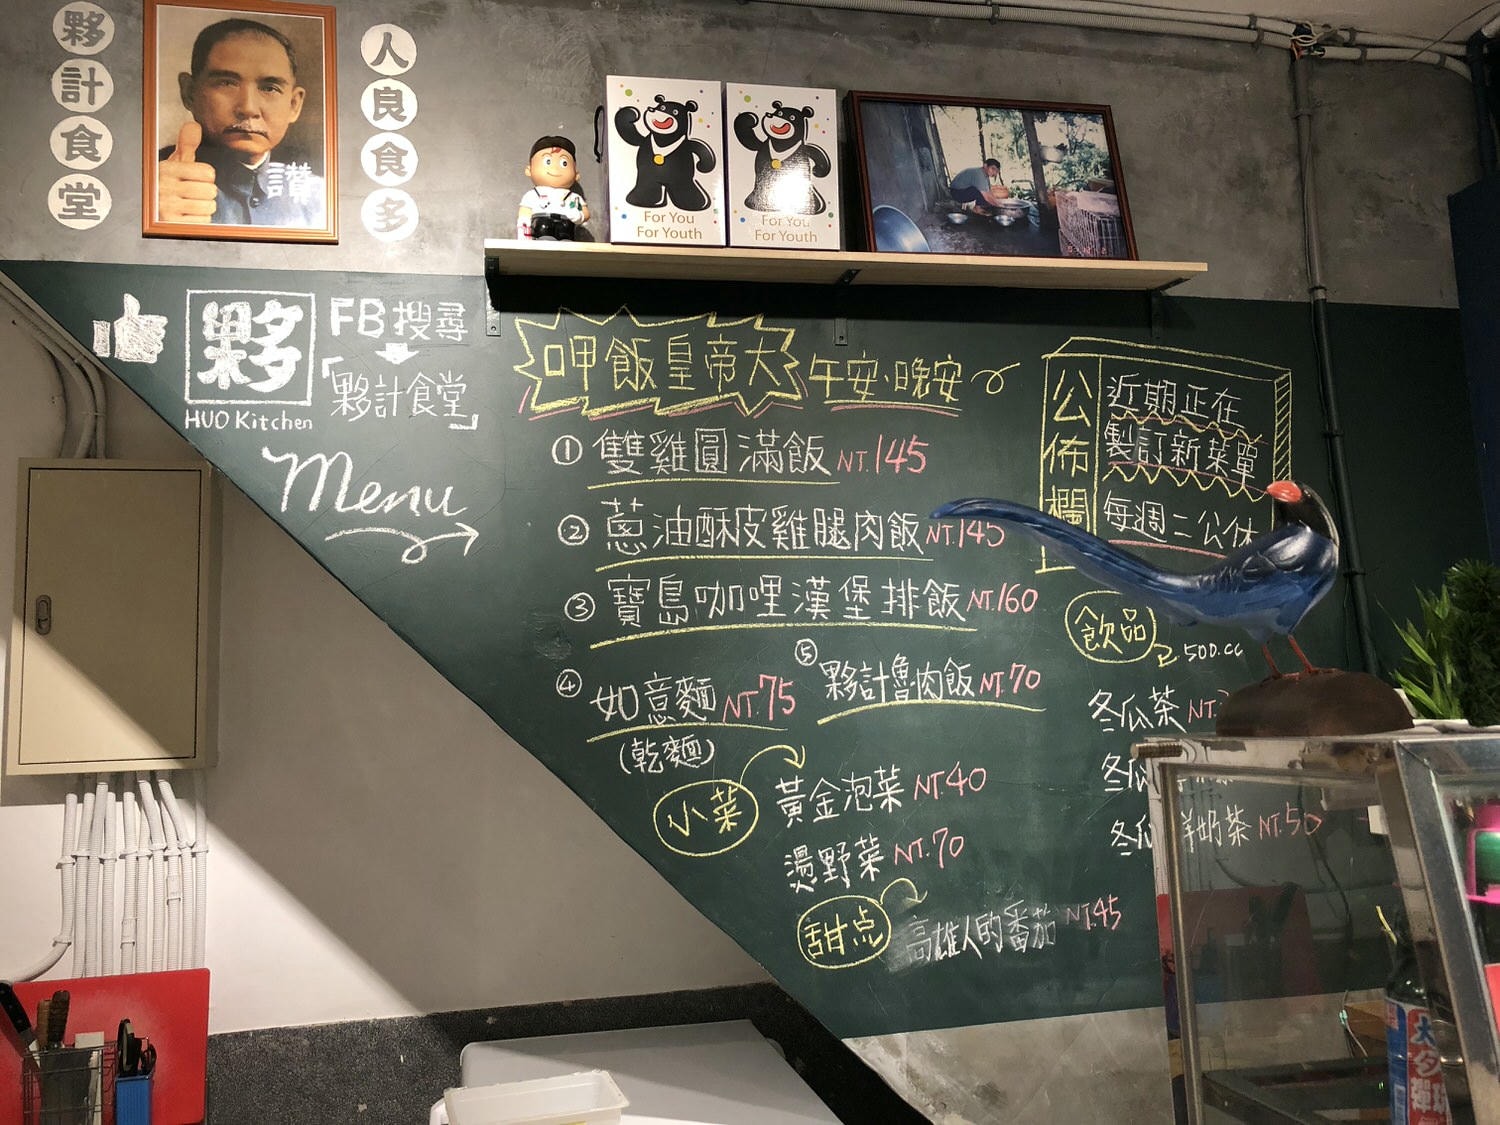 夥計食堂
人良食多
讚
For You
For Youth
For You
For Youth
夥
HUO Kitchen
FB搜尋
「夥計食堂」
Menu
呷飯皇帝大
午安、晚安
①雙雞圓滿飯 NT.145
②蔥油酥皮雞腿肉飯 NT.145
③寶島咖哩漢堡排飯 NT.160
④如意麵 NT.75
(乾麵)
⑤夥計魯肉飯 NT.70
小菜
黃金泡菜 NT.40
燙野菜 NT.70
甜点
高雄人的番茄 NT.45
公佈欄
近期正在
製訂新菜單
每週二公休
飲品
500.cc
冬瓜茶 NT.
冬瓜
冬瓜鮮奶茶 NT.50